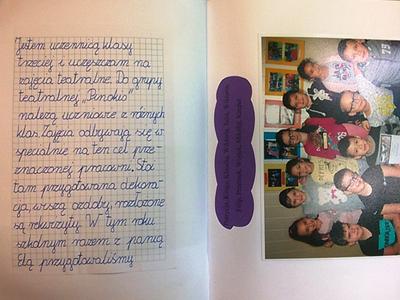 Jestem uczennicą klasy
trzeciej i uczęszczam na
zajęcia teatralne. Do grupy
teatralnej „Pinokio"
należą uczniowie z różnych
klas. Zajęcia odbywają się w
specjalnie na ten cel prze-
znaczonej pracowni. Stoi
tam przygotowana dekora-
cja, wiszą ozdoby, rozłożone
są rekwizyty. W tym roku
szkolnym razem z panią
Elą przygotowaliśmy